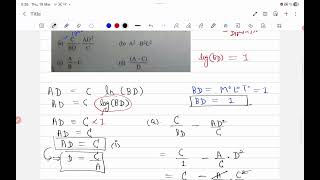 Title
(a) C/BD - AD²/C (b) A² - B²C²
(c) A/B - C (d) (A-C)/D
log(BD) = 1
AD = C ln (BD)
AD = C log(BD)
BD = M⁰L⁰T⁰ = 1
BD = 1
AD = C × 1
AD = C
AD = C (i)
D = C/A
(a) C/BD - AD²/C
= C/1 - A/C · D²